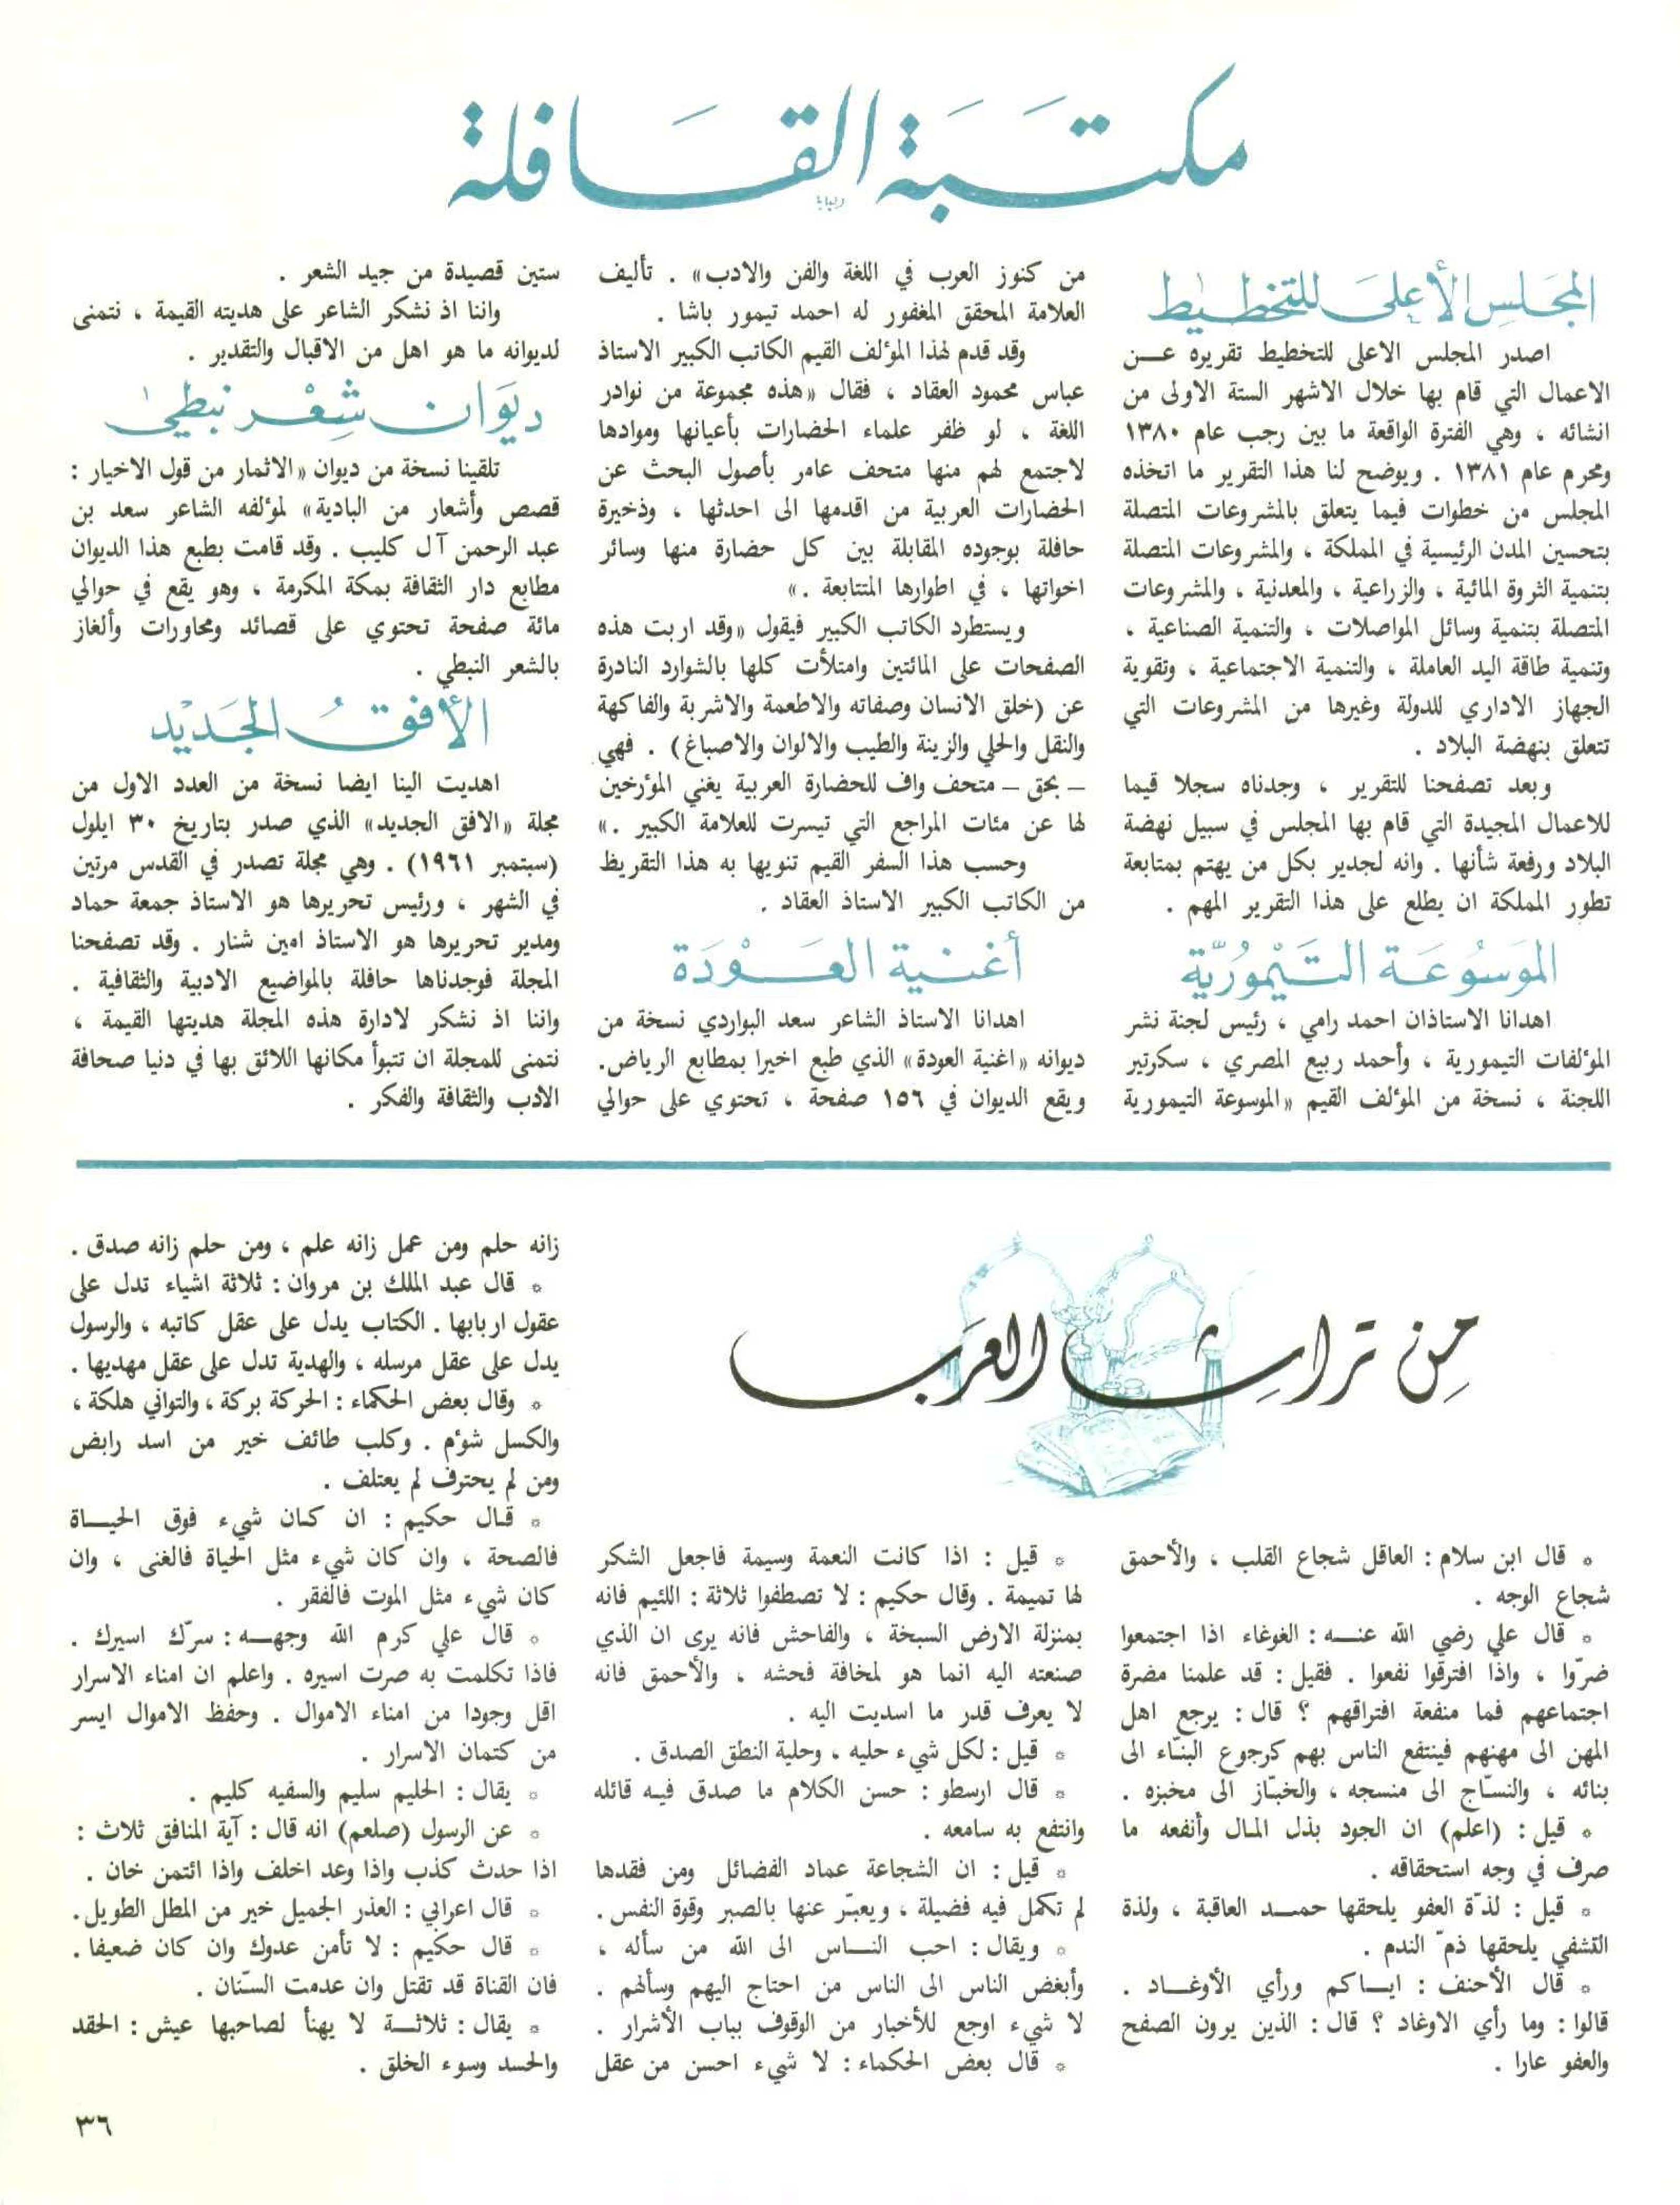 مكتبة القافلة
المجلس الأعلى للتخطيط
اصدر المجلس الاعلى للتخطيط تقريره عن
الاعمال التي قام بها خلال الاشهر الستة الاولى من
انشائه ، وهي الفترة الواقعة ما بين رجب عام ١٣٨٠
ومحرم عام ١٣٨١ . ويوضح لنا هذا التقرير ما اتخذه
المجلس من خطوات فيما يتعلق بالمشروعات المتصلة
بتحسين المدن الرئيسية في المملكة ، والمشروعات المتصلة
بتنمية الثروة المائية ، والزراعية ، والمعدنية ، والمشروعات
المتصلة بتنمية وسائل المواصلات ، والتنمية الصناعية ،
وتنمية طاقة اليد العاملة ، والتنمية الاجتماعية ، وتقوية
الجهاز الاداري للدولة وغيرها من المشروعات التي
تتعلق بنهضة البلاد .
وبعد تصفحنا للتقرير ، وجدناه سجلا قيما
للاعمال المجيدة التي قام بها المجلس في سبيل نهضة
البلاد ورفعة شأنها . وانه لجدير بكل من يهتم بمتابعة
تطور المملكة ان يطلع على هذا التقرير المهم .
الموسوعة التيمورية
اهدانا الاستاذان احمد رامي ، رئيس لجنة نشر
المؤلفات التيمورية ، وأحمد ربيع المصري ، سكرتير
اللجنة ، نسخة من المؤلف القيم «الموسوعة التيمورية
من كنوز العرب في اللغة والفن والادب» . تأليف
العلامة المحقق المغفور له احمد تيمور باشا .
وقد قدم لهذا المؤلف القيم الكاتب الكبير الاستاذ
عباس محمود العقاد ، فقال «هذه مجموعة من نوادر
اللغة ، لو ظفر علماء الحضارات بأعيانها وموادها
لاجتمع لهم منها متحف عامر بأصول البحث عن
الحضارات العربية من اقدمها الى احدثها ، وذخيرة
حافلة بوجوده المقابلة بين كل حضارة منها وسائر
اخواتها ، في اطوارها المتتابعة .»
ويستطرد الكاتب الكبير فيقول «وقد اربت هذه
الصفحات على المائتين وامتلأت كلها بالشوارد النادرة
عن (خلق الانسان وصفاته والاطعمة والاشربة والفاكهة
والنقل والحلي والزينة والطيب والالوان والاصباغ) . فهي
– بحق – متحف واف للحضارة العربية يغني المؤرخين
لها عن مئات المراجع التي تيسرت للعلامة الكبير .»
وحسب هذا السفر القيم تنويها به هذا التقريظ
من الكاتب الكبير الاستاذ العقاد .
أغنية العودة
اهدانا الاستاذ الشاعر سعد البواردي نسخة من
ديوانه «اغنية العودة» الذي طبع اخيرا بمطابع الرياض.
ويقع الديوان في ١٥٦ صفحة ، تحتوي على حوالي
ستين قصيدة من جيد الشعر .
واننا اذ نشكر الشاعر على هديته القيمة ، نتمنى
لديوانه ما هو اهل من الاقبال والتقدير .
ديوان شعر نبطي
تلقينا نسخة من ديوان «الاثمار من قول الاخيار :
قصص وأشعار من البادية» لمؤلفه الشاعر سعد بن
عبد الرحمن آل كليب . وقد قامت بطبع هذا الديوان
مطابع دار الثقافة بمكة المكرمة ، وهو يقع في حوالي
مائة صفحة تحتوي على قصائد ومحاورات وألغاز
بالشعر النبطي .
الأفق الجديد
اهديت الينا ايضا نسخة من العدد الاول من
مجلة «الافق الجديد» الذي صدر بتاريخ ٣٠ ايلول
(سبتمبر ١٩٦١) . وهي مجلة تصدر في القدس مرتين
في الشهر ، ورئيس تحريرها هو الاستاذ جمعة حماد
ومدير تحريرها هو الاستاذ امين شنار . وقد تصفحنا
المجلة فوجدناها حافلة بالمواضيع الادبية والثقافية .
واننا اذ نشكر لادارة هذه المجلة هديتها القيمة ،
نتمنى للمجلة ان تتبوأ مكانها اللائق بها في دنيا صحافة
الادب والثقافة والفكر .
من تراث العرب
* قال ابن سلام : العاقل شجاع القلب ، والأحمق
شجاع الوجه .
* قال علي رضي الله عنه : الغوغاء اذا اجتمعوا
ضرّوا ، واذا افترقوا نفعوا . فقيل : قد علمنا مضرة
اجتماعهم فما منفعة افتراقهم ؟ قال : يرجع اهل
المهن الى مهنهم فينتفع الناس بهم كرجوع البنّاء الى
بنائه ، والنسّاج الى منسجه ، والخبّاز الى مخبزه .
* قيل : (اعلم) ان الجود بذل المال وأنفعه ما
صرف في وجه استحقاقه .
* قيل : لذّة العفو يلحقها حمد العاقبة ، ولذة
التشفي يلحقها ذمّ الندم .
* قال الأحنف : اياكم ورأي الأوغاد .
قالوا : وما رأي الاوغاد ؟ قال : الذين يرون الصفح
والعفو عارا .
* قيل : اذا كانت النعمة وسيمة فاجعل الشكر
لها تميمة . وقال حكيم : لا تصطفوا ثلاثة : اللئيم فانه
بمنزلة الارض السبخة ، والفاحش فانه يرى ان الذي
صنعته اليه انما هو لمخافة فحشه ، والأحمق فانه
لا يعرف قدر ما اسديت اليه .
* قيل : لكل شيء حليه ، وحلية النطق الصدق .
* قال ارسطو : حسن الكلام ما صدق فيه قائله
وانتفع به سامعه .
* قيل : ان الشجاعة عماد الفضائل ومن فقدها
لم تكمل فيه فضيلة ، ويعبّر عنها بالصبر وقوة النفس .
* ويقال : احب الناس الى الله من سأله ،
وأبغض الناس الى الناس من احتاج اليهم وسألهم .
لا شيء اوجع للأخيار من الوقوف بباب الأشرار .
* قال بعض الحكماء : لا شيء احسن من عقل
زانه حلم ومن عمل زانه علم ، ومن حلم زانه صدق .
* قال عبد الملك بن مروان : ثلاثة اشياء تدل على
عقول اربابها . الكتاب يدل على عقل كاتبه ، والرسول
يدل على عقل مرسله ، والهدية تدل على عقل مهديها .
* وقال بعض الحكماء : الحركة بركة ، والتواني هلكة ،
والكسل شؤم . وكلب طائف خير من اسد رابض
ومن لم يحترف لم يعتلف .
* قال حكيم : ان كان شيء فوق الحياة
فالصحة ، وان كان شيء مثل الحياة فالغنى ، وان
كان شيء مثل الموت فالفقر .
* قال علي كرم الله وجهه : سرّك اسيرك .
فاذا تكلمت به صرت اسيره . واعلم ان امناء الاسرار
اقل وجودا من امناء الاموال . وحفظ الاموال ايسر
من كتمان الاسرار .
* يقال : الحليم سليم والسفيه كليم .
* عن الرسول (صلعم) انه قال : آية المنافق ثلاث :
اذا حدث كذب واذا وعد اخلف واذا ائتمن خان .
* قال اعرابي : العذر الجميل خير من المطل الطويل.
* قال حكيم : لا تأمن عدوك وان كان ضعيفا .
فان القناة قد تقتل وان عدمت السّنان .
* يقال : ثلاثة لا يهنأ لصاحبها عيش : الحقد
والحسد وسوء الخلق .
٣٦